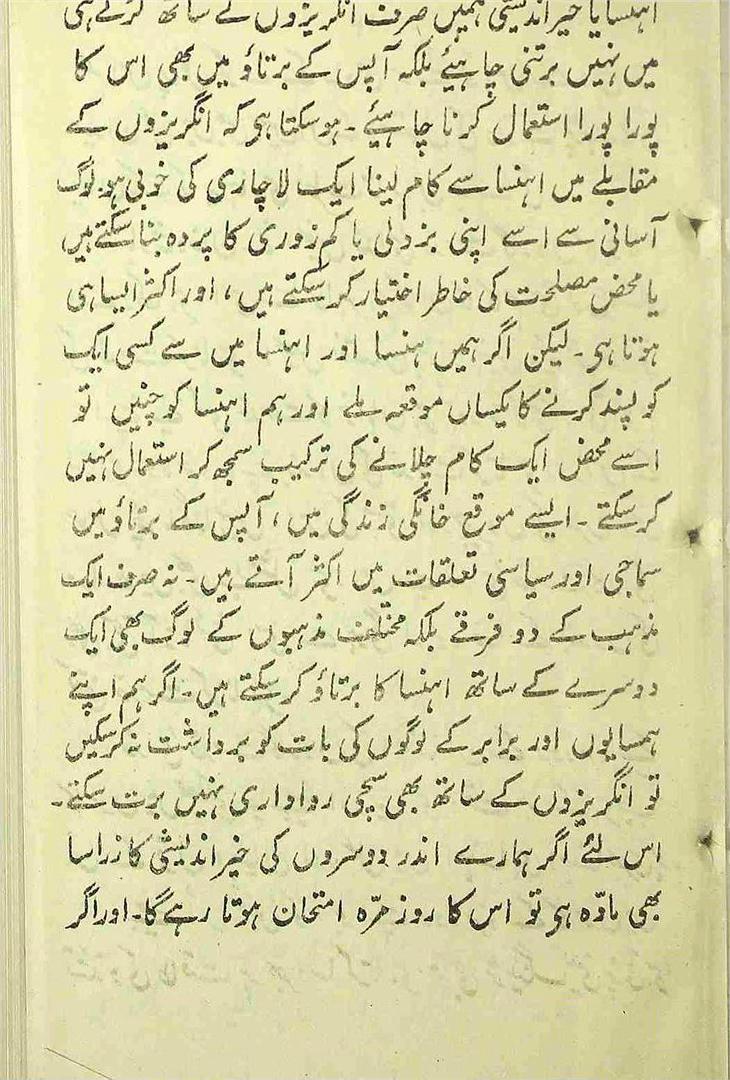 اہنسا یا خیر اندیشی ہمیں صرف انگریزوں کے ساتھ کرنے ہی
میں نہیں برتنی چاہیئے بلکہ آپس کے برتاؤ میں بھی اس کا
پورا پورا استعمال کرنا چاہیئے ۔ ہوسکتا ہی کہ انگریزوں کے
مقابلے میں اہنسا سے کام لینا ایک لاچاری کی خوبی ہو۔ لوگ
آسانی سے اسے اپنی بزدلی یا کم زوری کا پردہ بنا سکتے ہیں
یا محض مصلحت کی خاطر اختیار کر سکتے ہیں ، اور اکثر ایسا ہی
ہوتا ہی ۔ لیکن اگر ہمیں ہنسا اور اہنسا میں سے کسی ایک
کو پسند کرنے کا یکساں موقعہ ملے اور ہم اہنسا کو چنیں تو
اسے محض ایک کام چلانے کی ترکیب سمجھ کر استعمال نہیں
کرسکتے ۔ ایسے موقع خانگی زندگی میں ، آپس کے برتاؤ میں
سماجی اور سیاسی تعلقات میں اکثر آتے ہیں ۔ نہ صرف ایک
مذہب کے دو فرقے بلکہ مختلف مذہبوں کے لوگ بھی ایک
دوسرے کے ساتھ اہنسا کا برتاؤ کر سکتے ہیں ۔ اگر ہم اپنے
ہمسایوں اور برابر کے لوگوں کی بات کو برداشت نہ کرسکیں
تو انگریزوں کے ساتھ بھی سچی رواداری نہیں برت سکتے ۔
اس لئے اگر ہمارے اندر دوسروں کی خیر اندیشی کا زرا سا
بھی مادّہ ہی تو اس کا روز مرّہ امتحان ہوتا رہے گا ۔ اور اگر